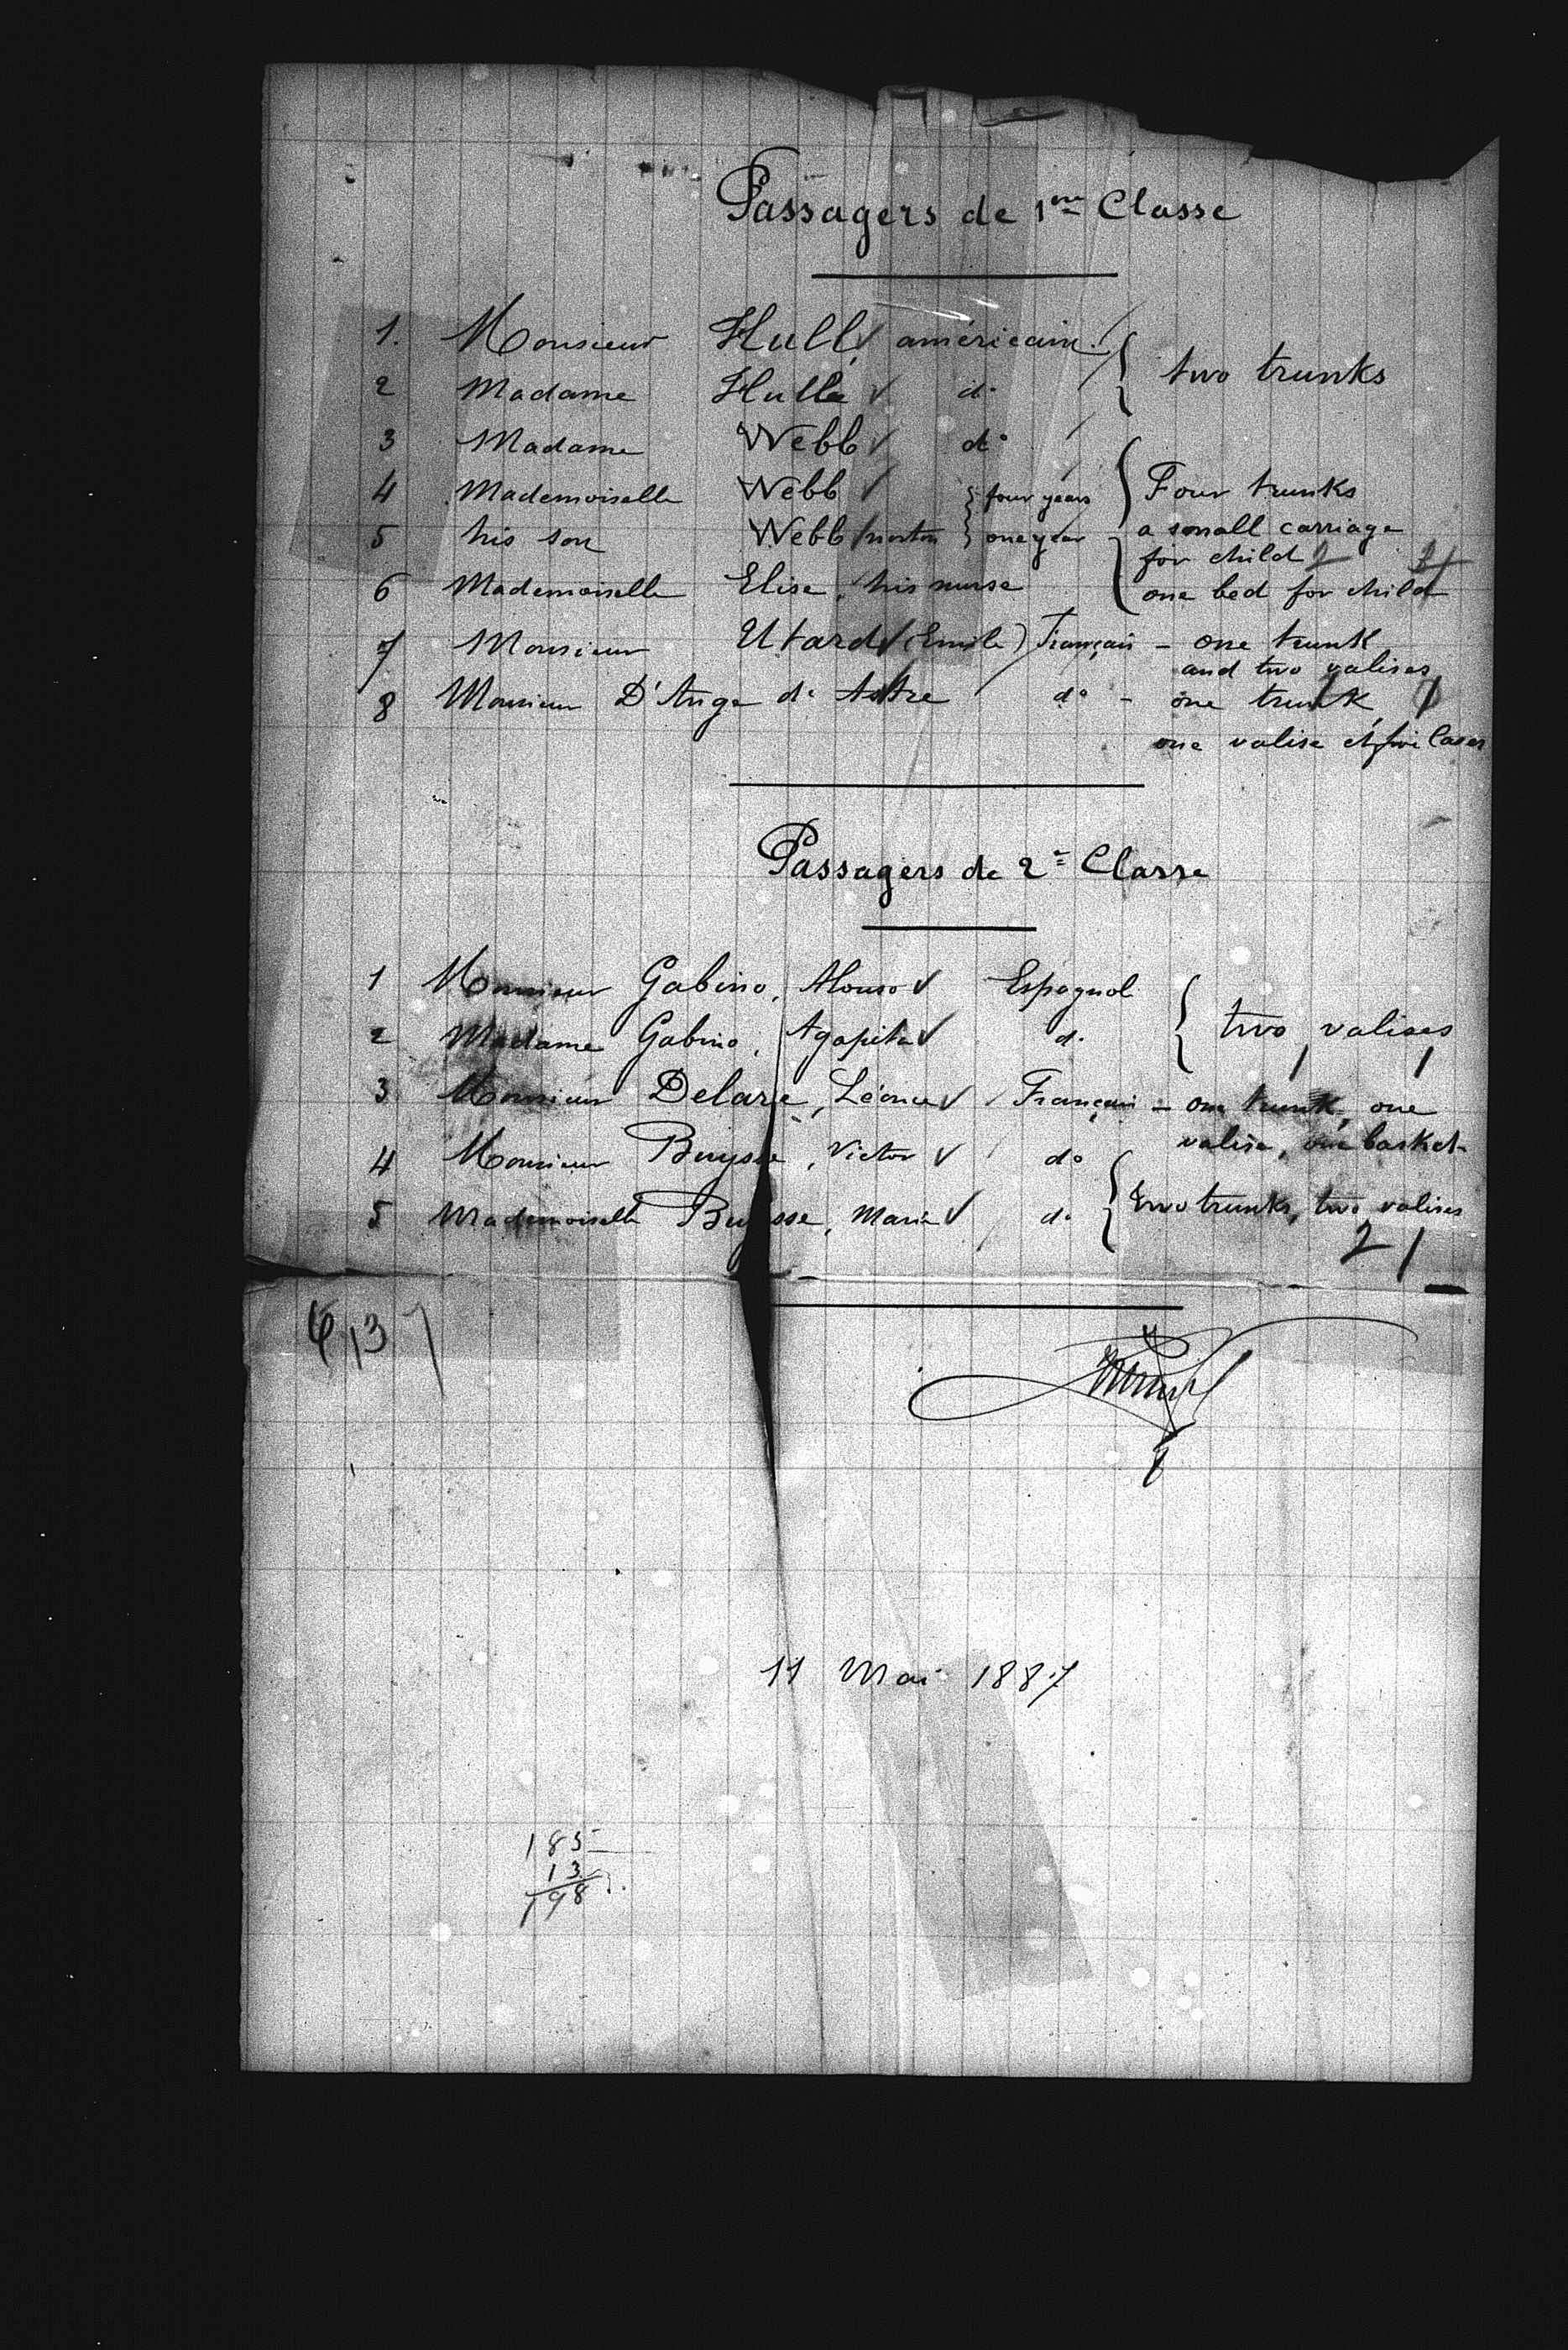 Passagers de 1ère Classe
1. Monsieur Hull américain. { two trunks
2 Madame Hull do
3 Madame Webb do
4 Mademoiselle Webb } four years { Four trunks
5 his son Webb Norton } one year - a small carriage
for child 2
6 Mademoiselle Elise, his nurse one bed for child
7 Monsieur Utard (Emile) Français - one trunk
and two valises
8 Monsieur D'Ange d' Astre do - one trunk,
one valise
Passagers de 2e Classe
1 Monsieur Gabino, Alonso Espagnol { two valises
2 Madame Gabino, Agapita do
3 Monsieur Delare, Léonce Français - one trunk, one
valise, one basket
4 Monsieur Buysse, Victor do
5 Mademoiselle Buysse, Marie do { two trunks, two valises
21
13
11 Mai 1887
185
13
198